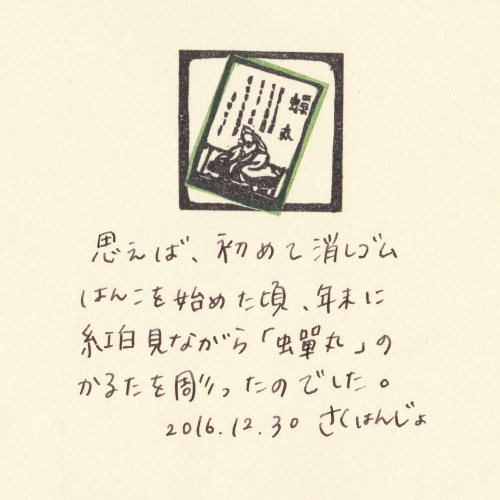 蟬丸
思えば、初めて消しゴム
はんこを始めた頃、年末に
紅白見ながら「蟬丸」の
かるたを彫ったのでした。
2016.12.30 さくはんじょ